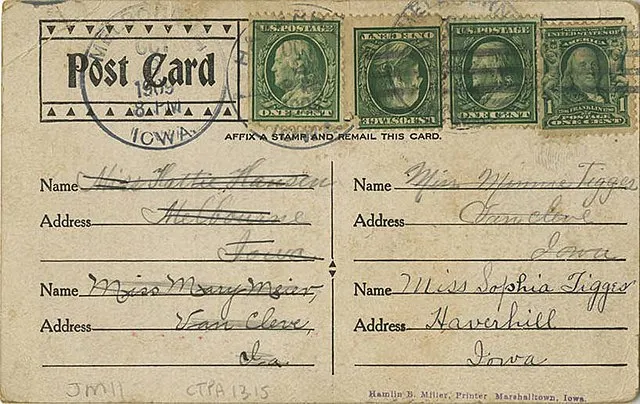 Post Card
MELBOURNE
OCT
1909
8 PM
IOWA.
U.S. POSTAGE
ONE CENT
U.S. POSTAGE
ONE CENT
U.S. POSTAGE
ONE CENT
UNITED STATES OF AMERICA
1 FRANKLIN 1
POSTAGE
ONE CENT
AFFIX A STAMP AND REMAIL THIS CARD.
Name Miss Hattie Hansen
Address Melbourne
Iowa
Name Miss Mary Meier,
Address Van Cleve,
Ia.
Name Miss Minnie Tigges
Address Vancleve
Iowa
Name Miss Sophia Tigges
Address Haverhill
Iowa
JM11 CTPA 1315
Hamlin B. Miller, Printer Marshalltown, Iowa.